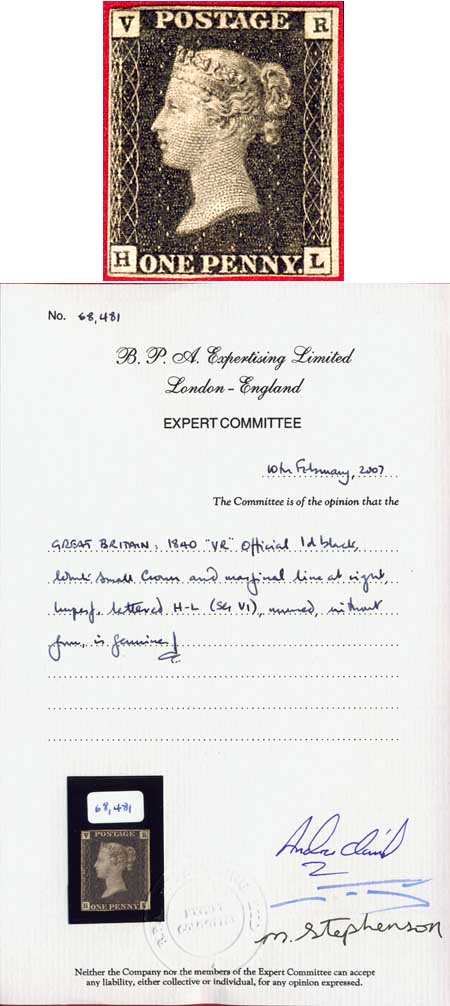 V POSTAGE R
H ONE PENNY. L
No. 68,481
B. P. A. Expertising Limited
London - England
EXPERT COMMITTEE
10th February, 2007
The Committee is of the opinion that the
GREAT BRITAIN: 1840 "VR" Official 1d black,
Wmk Small Crown and marginal line at right,
Imperf, lettered H-L (SG V1), unused, without
gum, is genuine
68,481
V POSTAGE R
H ONE PENNY. L
M. Stephenson
Neither the Company nor the members of the Expert Committee can accept
any liability, either collective or individual, for any opinion expressed.